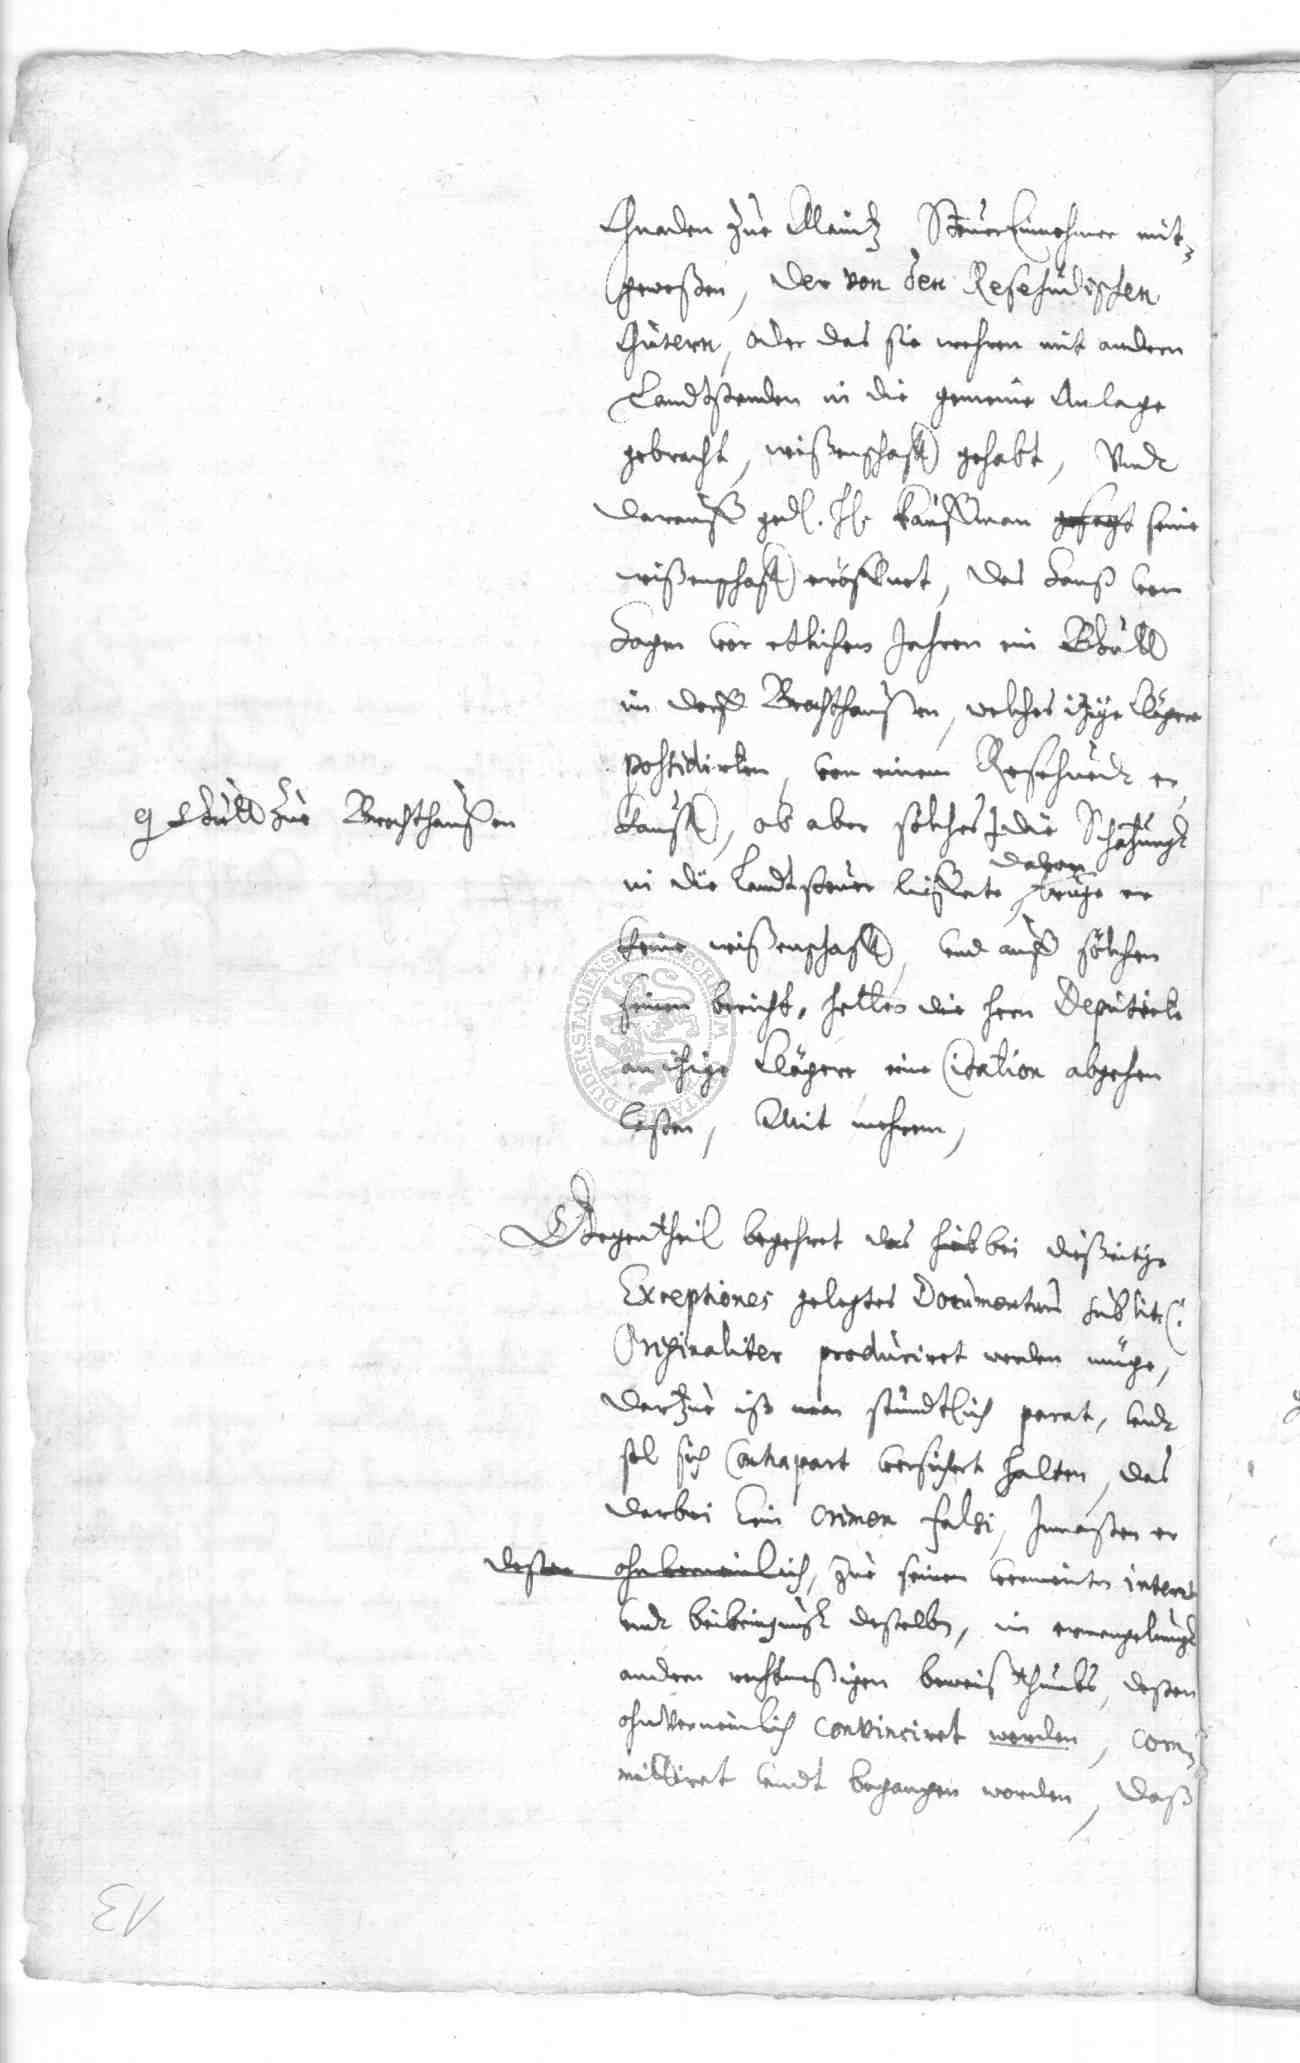 Gnaden zue Maintz SteuerEinnehmer mit
geweßen, der von den Resehudischen
Gütern, oder das sie wehren mit andern
Landtstenden in die gemeine Anlage
gebracht, wißenschafft gehabt, Vndt
darauff gedl. H. Kauffman gesagt seine
wißenschafft eröffnet, das Hanß von
Hagen vor etlichen Jahren ein Gütt
im dorff Brochthaußen, welches itzige Clägere
possidirten, von einem Reschuedt er
kaufft, ob aber solches die Schatzung
in die Landtsteuer lifferte, davon trüge er
keine wißenschafft, vnd auff solchen
seinen bericht, hetten die hern Deputirte
an itzige Clägere eine Citation abgehen
laßen, Mit mehrem,
g Gutt zue Brochthaußen
Gegentheil begehret das bei dießeitige
Exceptiones gelegtes Documentum sub lit. C.
Originaliter produciret werden müge,
dartzue ist man stundtlich parat, vndt
sol sich Contrapart versichert halten, das
darbei kein crimen falsi, Inmaßen er
deßen ohnverneinlich, zue seinem vermeinten interesse
vndt beibringnuß deßelben, in ermangelung
andern rechtmeßigen beweißthumbs, deßen
ohnverneinlich convinciret werden, com
mittiret vndt begangen worden, daß
13